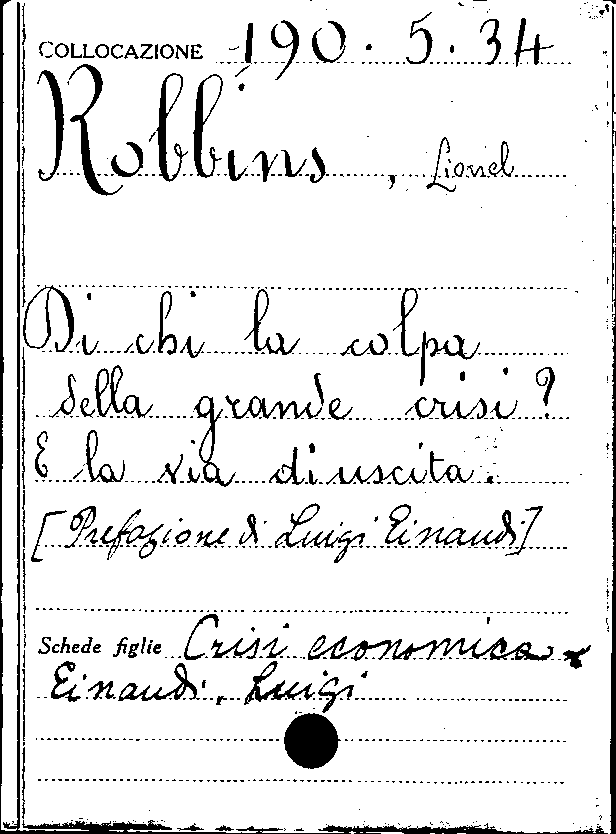 COLLOCAZIONE 190.5.34
Robbins, Lionel
Di chi la colpa
della grande crisi?
E la via di uscita.
[Prefazione di Luigi Einaudi]
Schede figlie Crisi economica
Einaudi, Luigi